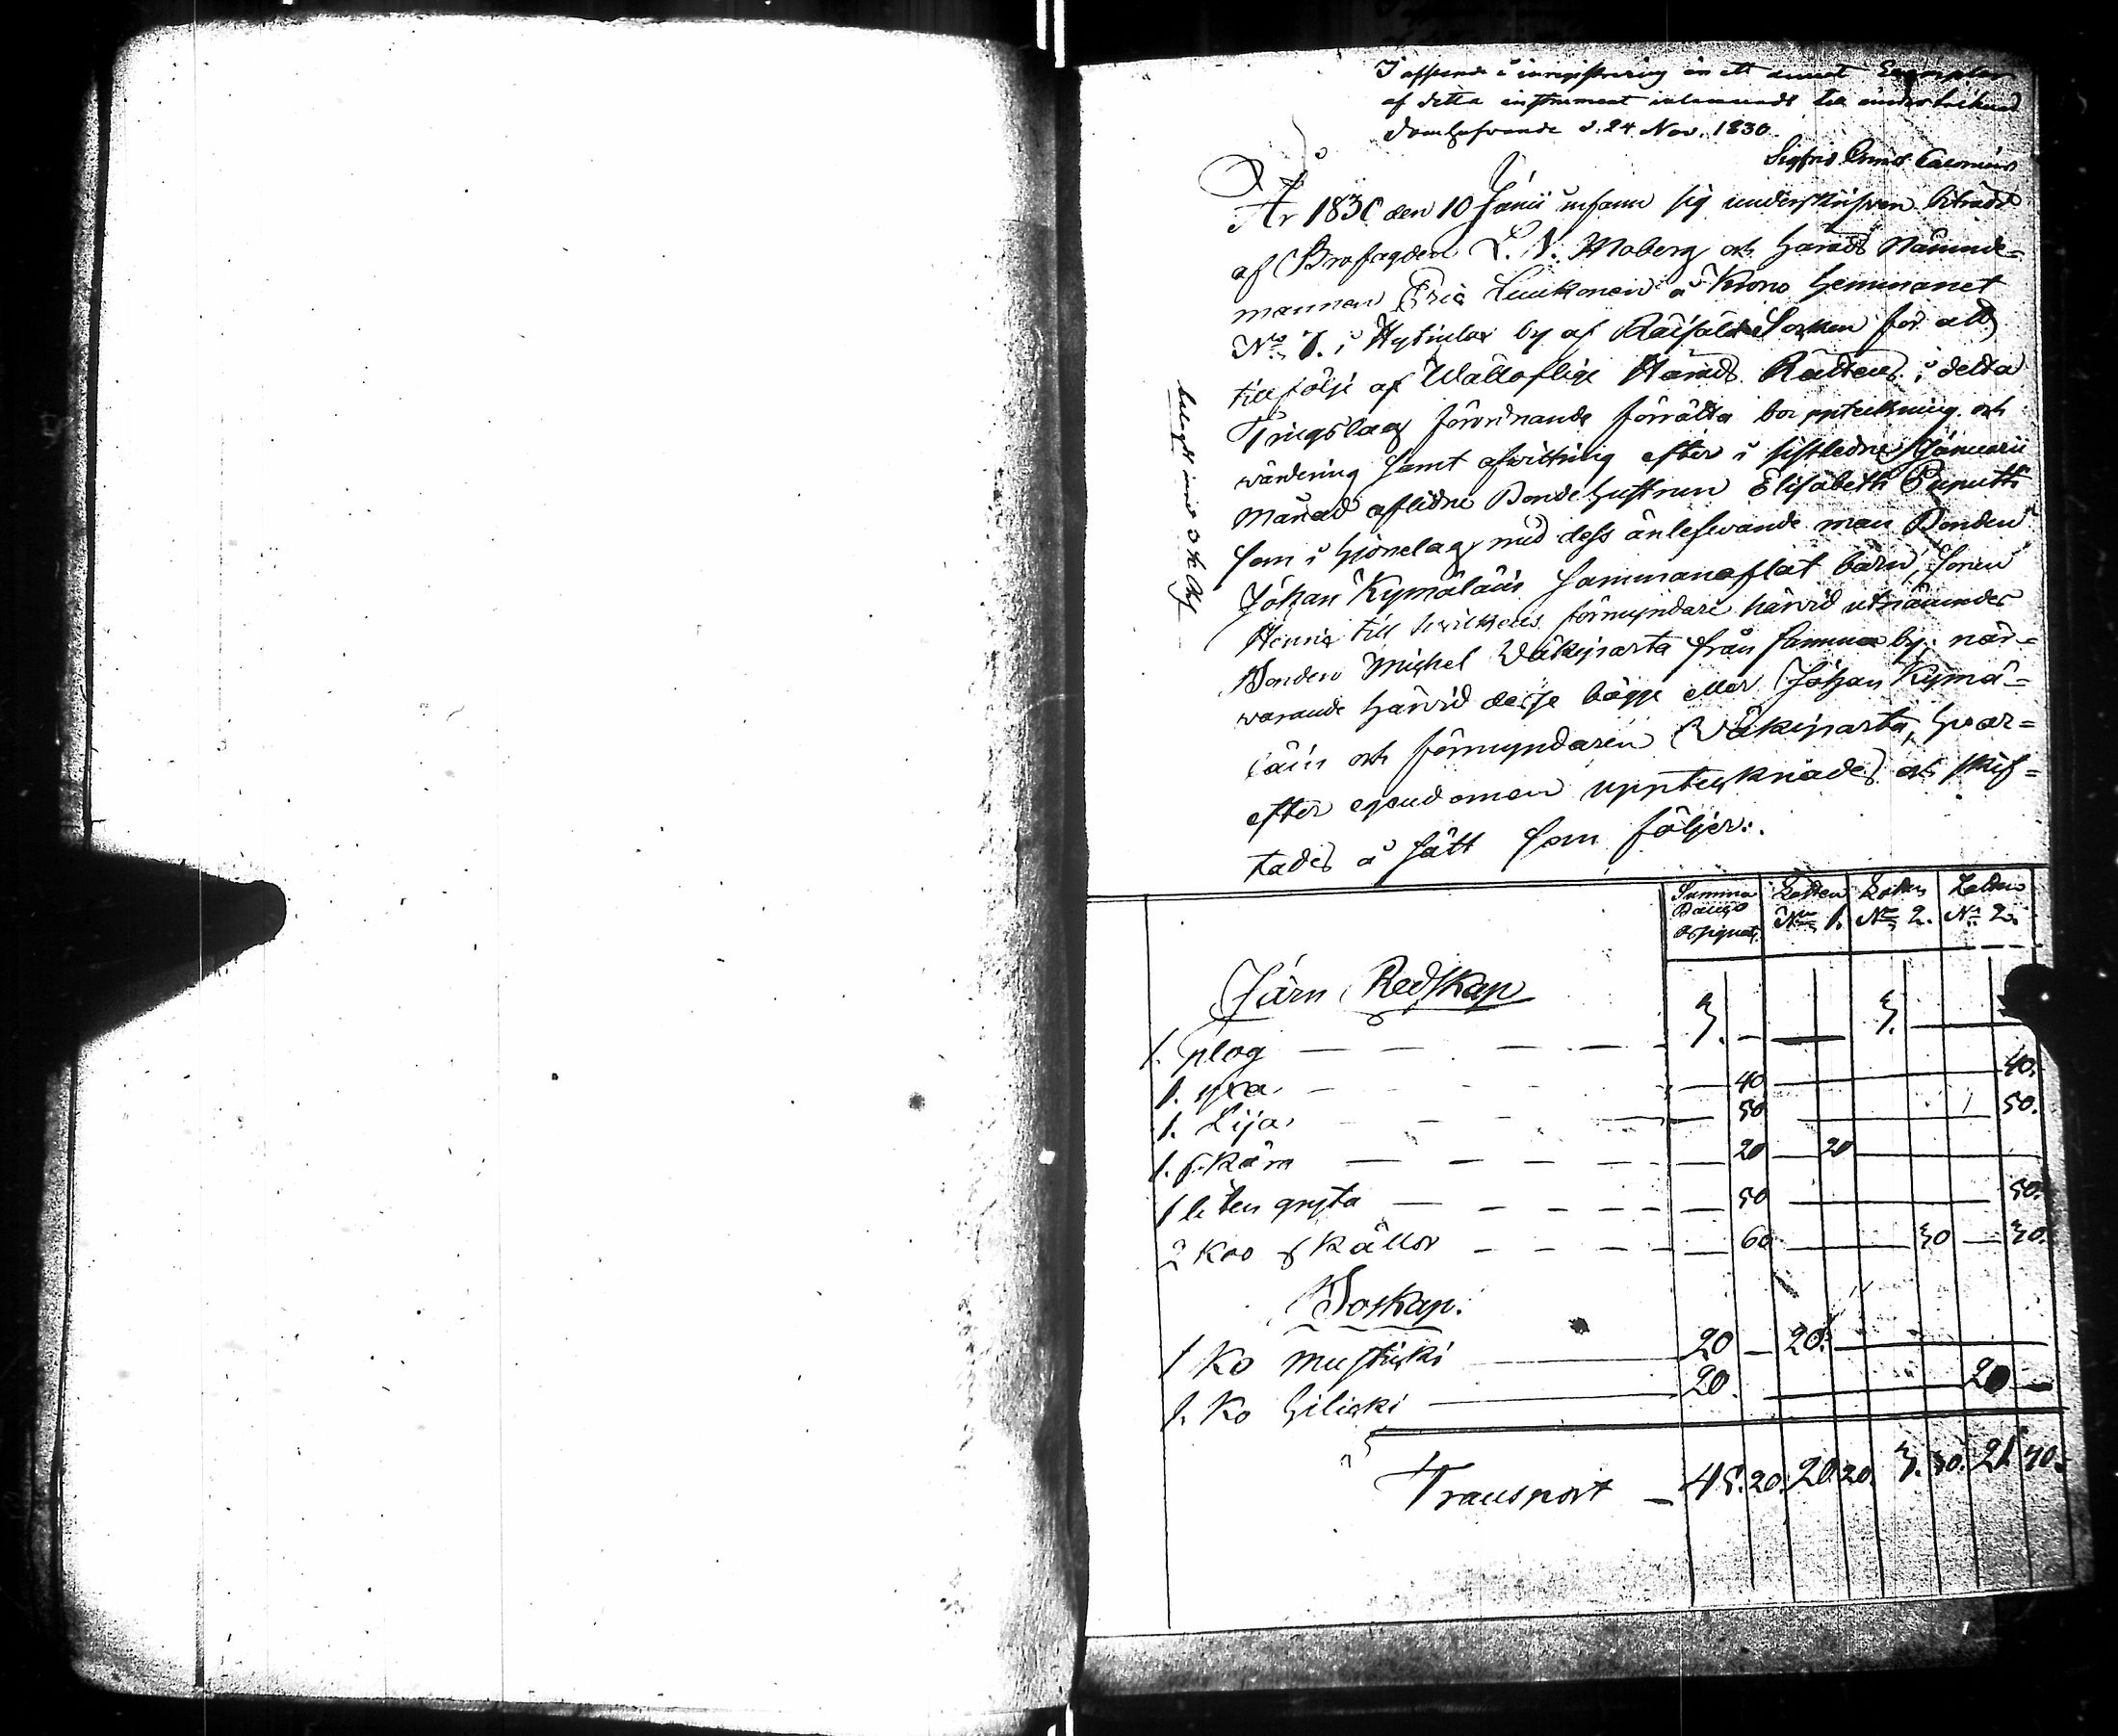 I afseende å inregistrering är ett annat Exemplar
af detta instrument inlemnadt till undertecknad
Domhafvande d. 24 Nov. 1830.
Sigfrid
År 1830 den 10 Junii infann sig underskrifven biträdd
af Brofogden L. N. Moberg och Härads Nämnde=
mannen Eric Luukonen å Krono Hemmanet
No 7. i Hytinlax by af Räisälä Sockn för att
till följe af Wälloflige Härads Rättens i detta
Tingslag förordnande förrätta bouppteckning och
wärdering samt afwittring efter i sistledne Januarii
Månad aflidne Bondehustrun Elisabeth Puputti
som i hjonelag med dess änlefwande man Bonden
Johan Kymäläin sammanaflat barn, Sonen
Henric till hwilkens förmyndare härvid utnämndes
Bonden Michel Wäkiparta från samma by; när=
warande härvid desse bägge eller Johan Kymä=
läin och förmyndaren Wäkiparta, hwar=
efter egendomen upptecknades och skif=
tades å sätt som följer:.
belagdt med
Summa Banco Assignat. Lotten No 1. Lotten No 2. Lotten No 2.
Järn Redskap
1. plog — — — — 3. — — 3. —
1. yxa — — — 40 — 40.
1. Lija — — — 50 — 50.
1. skära — — — — 20 — 20 —
1 liten gryta — — — — 50 — 50.
2 koo skällor — — — — 60 — 30 — 30.
Boskap.
1 Ko Mustikki — 20 — 20. —
1. Ko Hilicki — 20. — 20 —
Transport — 45. 20. 20 20. 3. 30. 21 70.